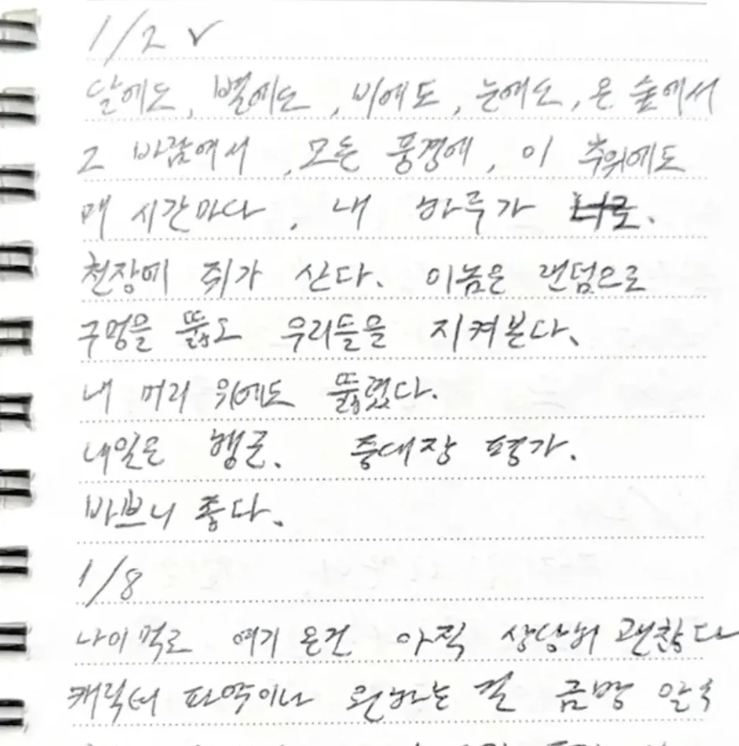 1/2 ✓
달에도, 별에도, 비에도, 눈에도, 온 숲에서
그 바람에서, 모든 풍경에, 이 추위에도
매 시간마다, 내 하루가 너로.
천장에 쥐가 산다. 이놈은 랜덤으로
구멍을 뚫고 우리들을 지켜본다.
내 머리 위에도 뚫렸다.
내일은 행군. 중대장 평가.
바쁘니 좋다.
1/8
나이 먹고 여기 온건 아직 상당히 괜찮다
캐릭터 파악이나 원하는 걸 금방 알아